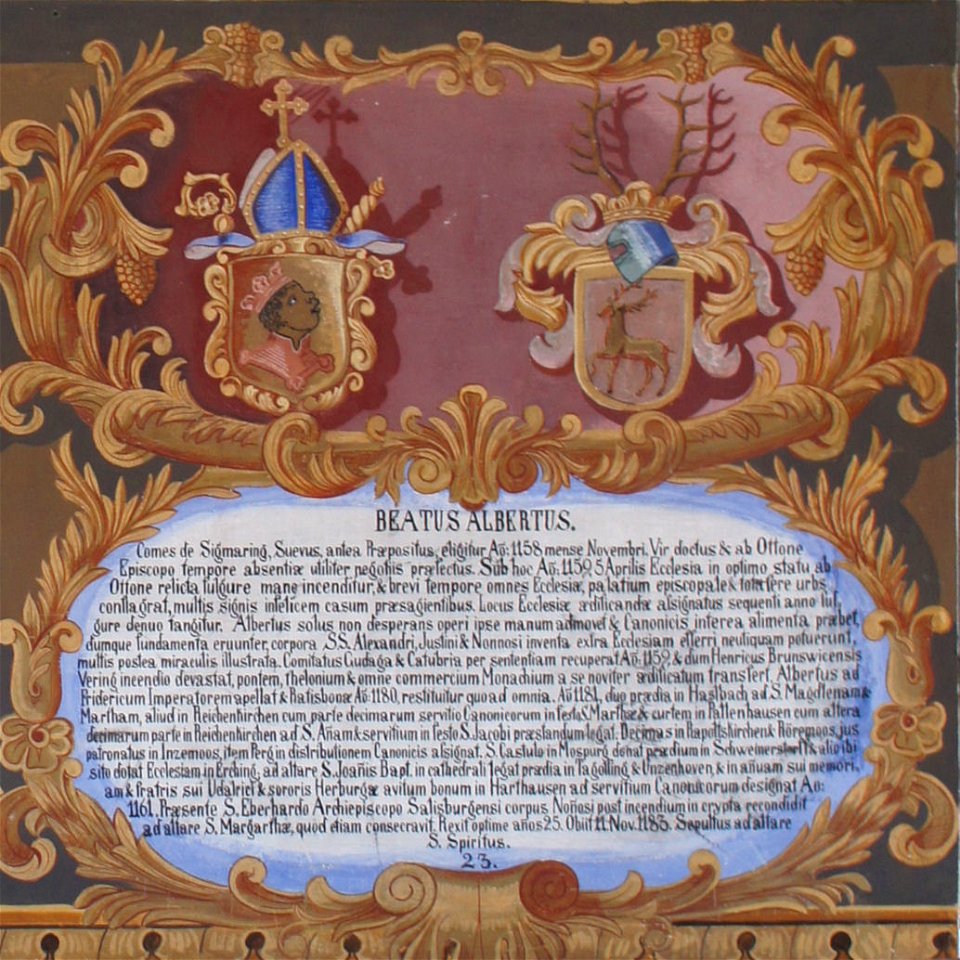 BEATUS ALBERTUS.
Comes de Sigmaring, Suevus, antea Præpositus, eligitur Aõ: 1158 mense Novembri. Vir doctus & ab Ottone
Episcopo tempore absentiæ utiliter negotiis præfectus. Sub hoc Aõ. 1159. 5 Aprilis Ecclesia in optimo statu ab
Ottone relicta fulgure mane incenditur, & brevi tempore omnes Ecclesiæ, palatium episcopale & tota fere urbs
conflagrat, multis signis infelicem casum præsagientibus. Locus Ecclesiæ ædificandæ assignatus sequenti anno ful,
gure denuo tangitur. Albertus solus non desperans operi ipse manum admovet & Canonicis interea alimenta præbet,
dumque fundamenta eruunter, corpora S.S. Alexandri, Justini & Nonnosi inventa extra Ecclesiam efferri neutiquam potuerunt,
multis postea miraculis illustrata. Comitatus Cudaga & Catubria per sententiam recuperat Aõ. 1159 & dum Henricus Brunswicensis
Vering incendio devastat, pontem, thelonium & omne commercium Monachium a se noviter ædificatum transfert, Albertus ad
Fridericum Imperatorem apellat & Ratisbonæ Aõ: 1180. restituitur quoad omnia. Aõ 1181. duo prædia in Haslbach ad S. Magdlenam &
Martham, aliud in Reichenkirchen cum parte decimarum servitio Canonicorum in festo S. Marthæ & curtem in Pallenhausen cum altera
decimarum parte in Reichenkirchen ad S. Añam & servitium in festo S. Jacobi præstandum legat. Decimas in Rapoltskirchen & Röremoos, jus
patronatus in Inzemoos, item Perg in distributionem Canonicis assignat. S. Castulo in Mospurg donat prædium in & alio ibi
sito dotat Ecclesiam in Erching, ad altare S. Joañis Bapt. in cathedrali legat prædia in Tagolling & Unzenhoven, & in añuam sui memori,
am & fratris sui Udalrici & sororis Herburgæ avitum bonum in Harthausen ad servitium Canonicorum designat Aõ:
1161. Præsente S. Eberhardo Archiepiscopo Salisburgensi corpus Noñosi post incendium in crypta recondidit
ad altare S. Margarthæ, quod etiam consecravit. Rexit optime años 25. Obiit 11 Nov. 1183. Sepultus ad altare
S. Spiritus.
23.